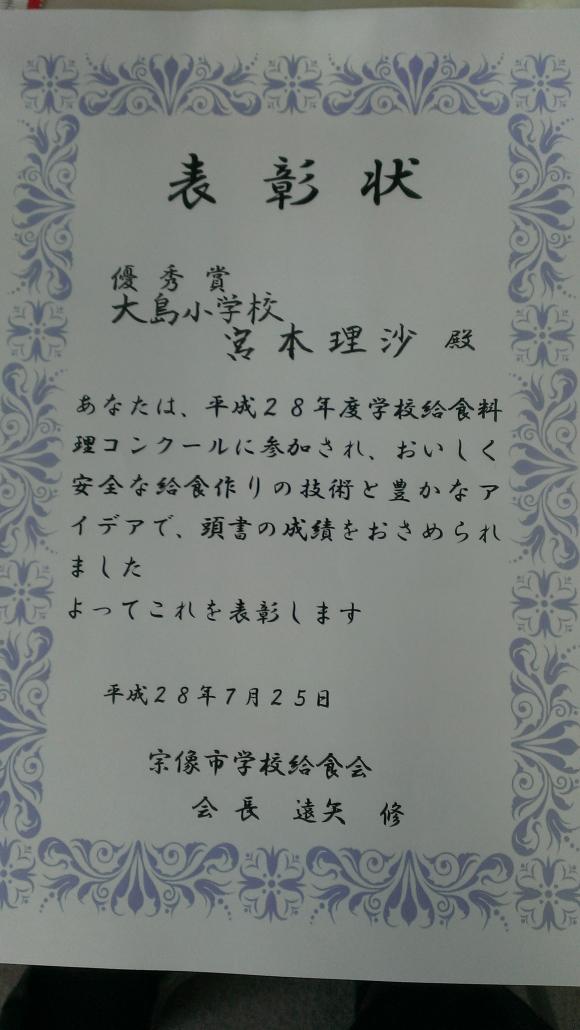 表彰状
優秀賞
大島小学校
宮本理沙 殿
あなたは、平成28年度学校給食料
理コンクールに参加され、おいしく
安全な給食作りの技術と豊かなア
イデアで、頭書の成績をおさめられ
ました
よってこれを表彰します
平成28年7月25日
宗像市学校給食会
会長 遠矢 修